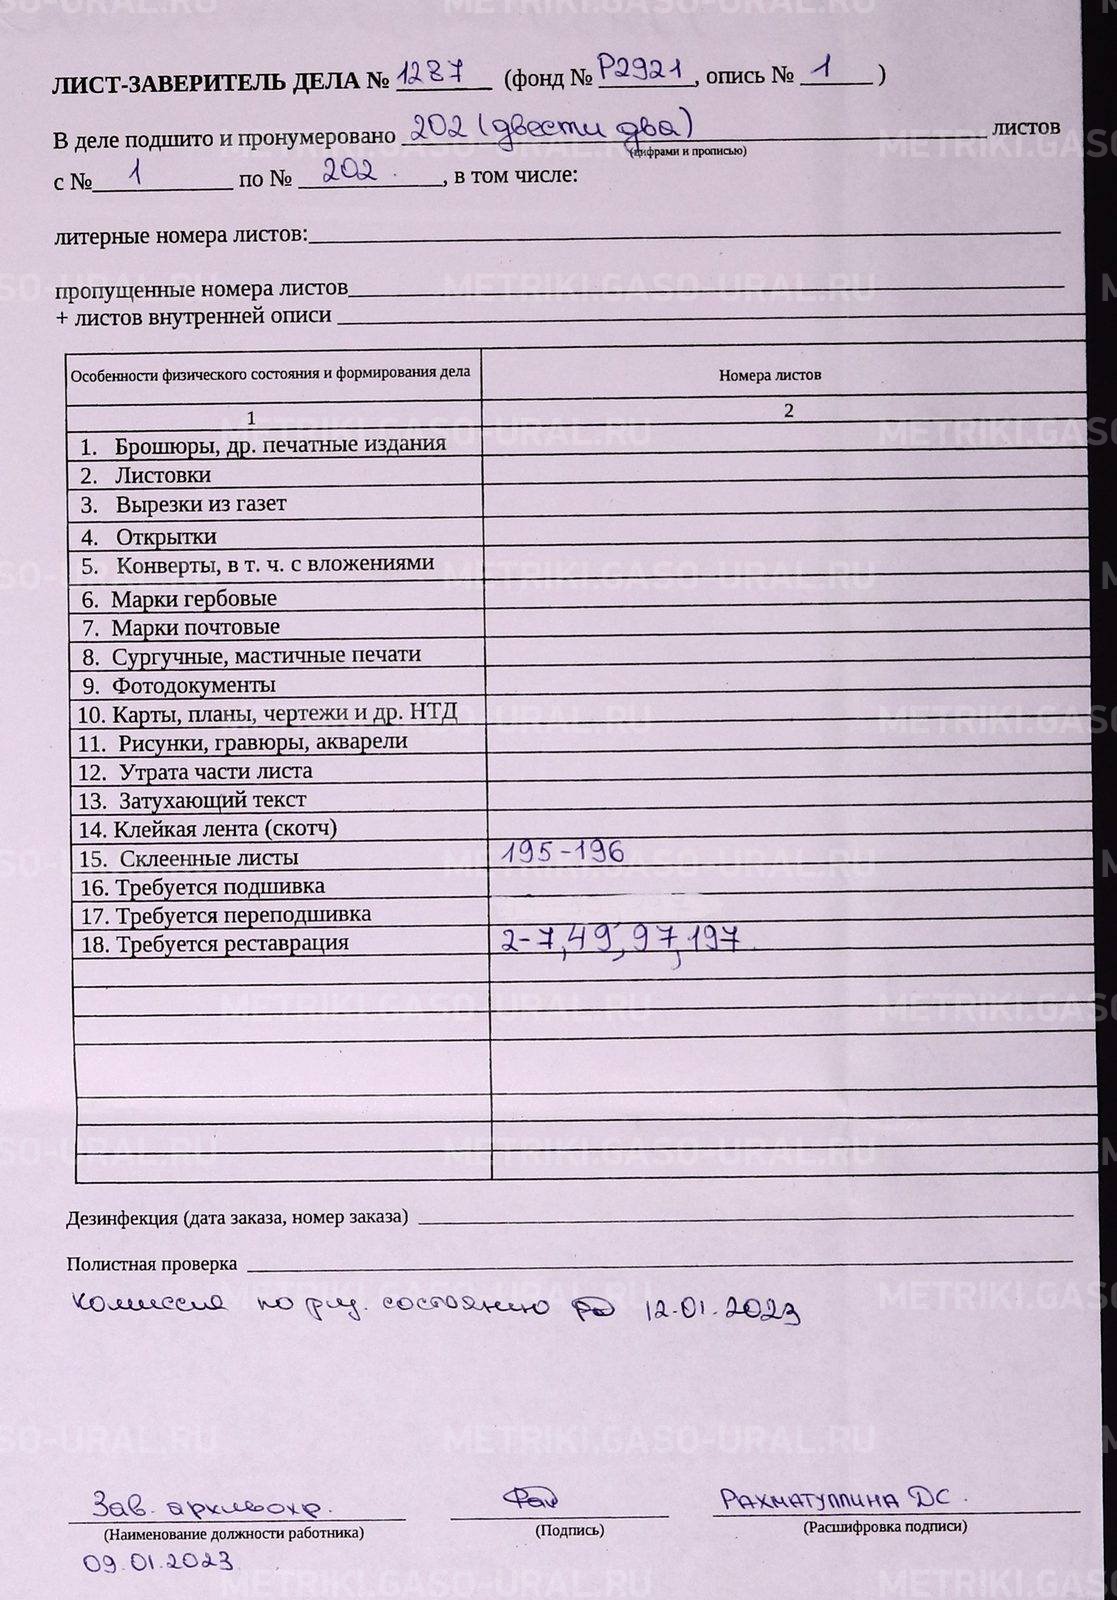 ЛИСТ-ЗАВЕРИТЕЛЬ ДЕЛА № 1287 (фонд № Р2921, опись № 1)
В деле подшито и пронумеровано 202 (двести два) листов
(цифрами и прописью)
с № 1 по № 202, в том числе:
литерные номера листов:
пропущенные номера листов
+ листов внутренней описи
Особенности физического состояния и формирования дела Номера листов
1 2
1. Брошюры, др. печатные издания
2. Листовки
3. Вырезки из газет
4. Открытки
5. Конверты, в т. ч. с вложениями
6. Марки гербовые
7. Марки почтовые
8. Сургучные, мастичные печати
9. Фотодокументы
10. Карты, планы, чертежи и др. НТД
11. Рисунки, гравюры, акварели
12. Утрата части листа
13. Затухающий текст
14. Клейкая лента (скотч)
15. Склеенные листы 195-196
16. Требуется подшивка
17. Требуется переподшивка
18. Требуется реставрация 2-7, 49, 97, 197.
Дезинфекция (дата заказа, номер заказа)
Полистная проверка
Комиссия по физ. состоянию 12.01.2023
Зав. архивохр. РАХМАТУЛЛИНА ДС.
(Наименование должности работника) (Подпись) (Расшифровка подписи)
09.01.2023
METRIKI.GASO-URAL.RU